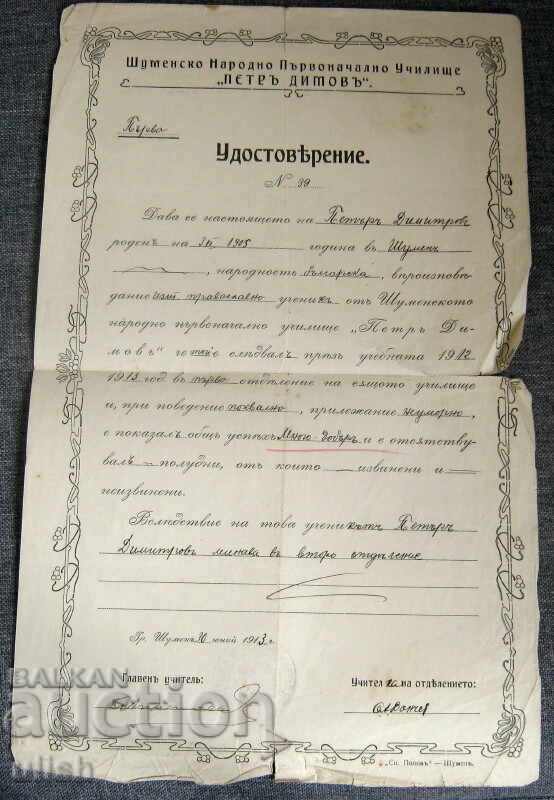 Шуменско Народно Първоначално Училище
„ПЕТРЪ ДИМОВЪ“.
Първо
Удостовѣрение.
№ 99
Дава се настоящето на Петъръ Димитров
роденъ на 1905 година въ Шумен
, народность българска, вѣроизповѣ-
дание изт. православно ученикъ отъ Шуменското
народно първоначално училище „Петръ Ди-
мовъ“ че слѣдвалъ прѣзъ учебната 1912
1913 год въ първо отдѣление на сѫщото училище
и, при поведение похвално, прилежание неуморно,
е показалъ общъ успѣхъ Много-добъръ и е отсѫтству-
валъ — полудни, отъ които — извинени и —
неизвинени.
Вслѣдствие на това ученикътъ Петъръ
Димитровъ минава въ второ отдѣление
Гр. Шуменъ 30 юний 1913 г.
Главенъ учитель:
Учител на отдѣлението:
„Сп. Поповъ“ — Шуменъ.
BALKAN
auction
ullsh